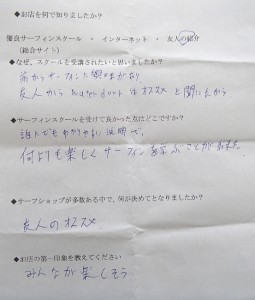 ◆お店を何で知りましたか?
優良サーフィンスクール ・ インターネット ・ 友人の紹介
(総合サイト)
◆なぜ、スクールを受講されたいと思いましたか?
前からサーフィンに興味があり、
友人から がオススメと聞いたから
◆サーフィンスクールを受けて良かった点はどこですか?
誰にでもわかりやすい説明で、
何よりも楽しくサーフィンを学ぶことが出来た。
◆サーフショップが多数ある中で、何が決めてとなりましたか?
友人のオススメ
◆お店の第一印象を教えてください
みんなが楽しそう